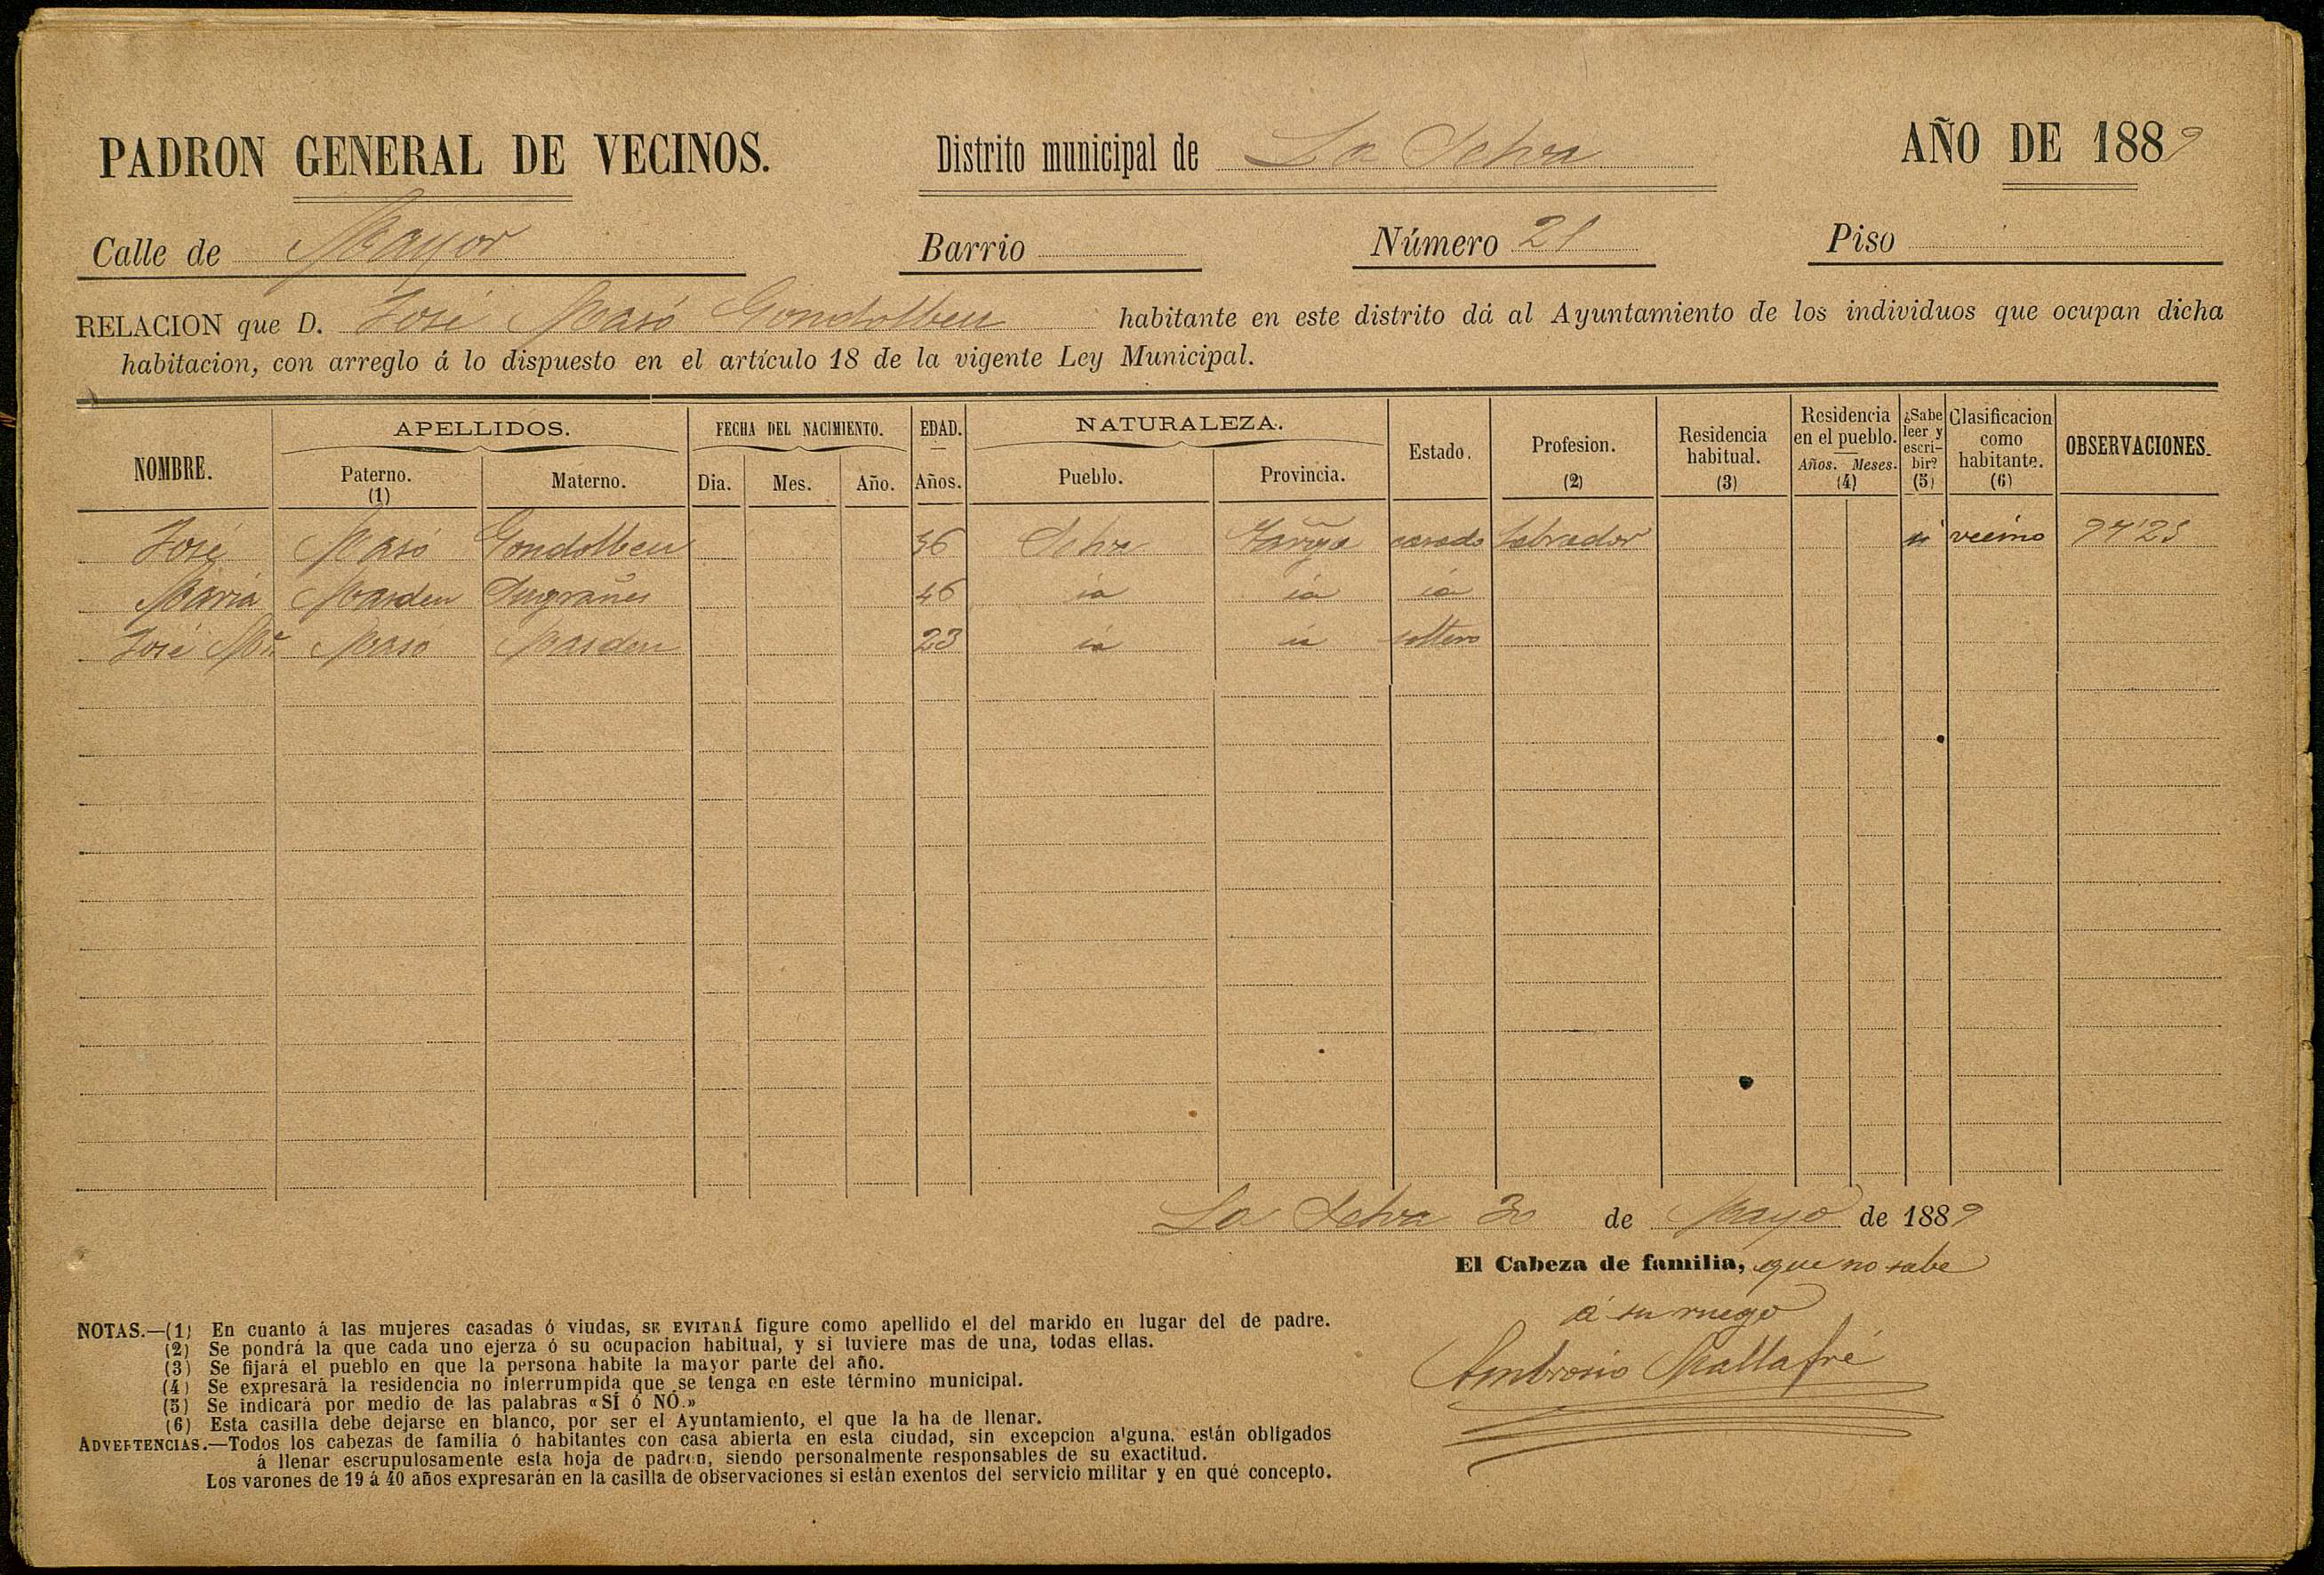 PADRON GENERAL DE VECINOS. Distrito municipal de La Selva AÑO DE 1889
Calle de Mayor Barrio Número 21 Piso
RELACION que D. José Masó Gondolbeu habitante en este distrito dá al Ayuntamiento de los individuos que ocupan dicha
habitacion, con arreglo á lo dispuesto en el artículo 18 de la vigente Ley Municipal.
NOMBRE. APELLIDOS. Paterno. (1) Materno. FECHA DEL NACIMIENTO. Dia. Mes. Año. EDAD. Años. NATURALEZA. Pueblo. Provincia. Estado. Profesion. (2) Residencia habitual. (3) Residencia en el pueblo. Años. Meses. (4) ¿Sabe leer y escribir? (5) Clasificacion como habitante. (6) OBSERVACIONES.
José Masó Gondolbeu 56 Selva casado Labrador si vecino
Maria Masdeu Ingrañes 46 id id id
José Mª Masó Masdeu 23 id id soltero
La Selva 30 de Mayo de 1889
El Cabeza de familia, que no sabe
á su ruego
Ambrosio Mallafré
NOTAS.—(1) En cuanto á las mujeres casadas ó viudas, SE EVITARÁ figure como apellido el del marido en lugar del de padre.
(2) Se pondrá la que cada uno ejerza ó su ocupacion habitual, y si tuviere mas de una, todas ellas.
(3) Se fijará el pueblo en que la persona habite la mayor parte del año.
(4) Se expresará la residencia no interrumpida que se tenga en este término municipal.
(5) Se indicará por medio de las palabras «SÍ ó NÓ.»
(6) Esta casilla debe dejarse en blanco, por ser el Ayuntamiento, el que la ha de llenar.
ADVERTENCIAS.—Todos los cabezas de familia ó habitantes con casa abierta en esta ciudad, sin excepcion alguna, están obligados
á llenar escrupulosamente esta hoja de padron, siendo personalmente responsables de su exactitud.
Los varones de 19 á 40 años expresarán en la casilla de observaciones si están exentos del servicio militar y en qué concepto.